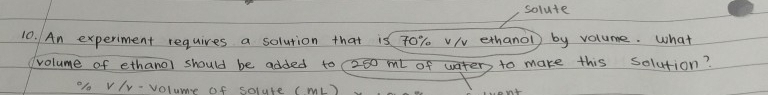 solute
10. An experiment requires a solution that is 70% v/v ethanol by volume. What
volume of ethanol should be added to 250 mL of water to make this solution?
% v/v = volume of solute (mL)